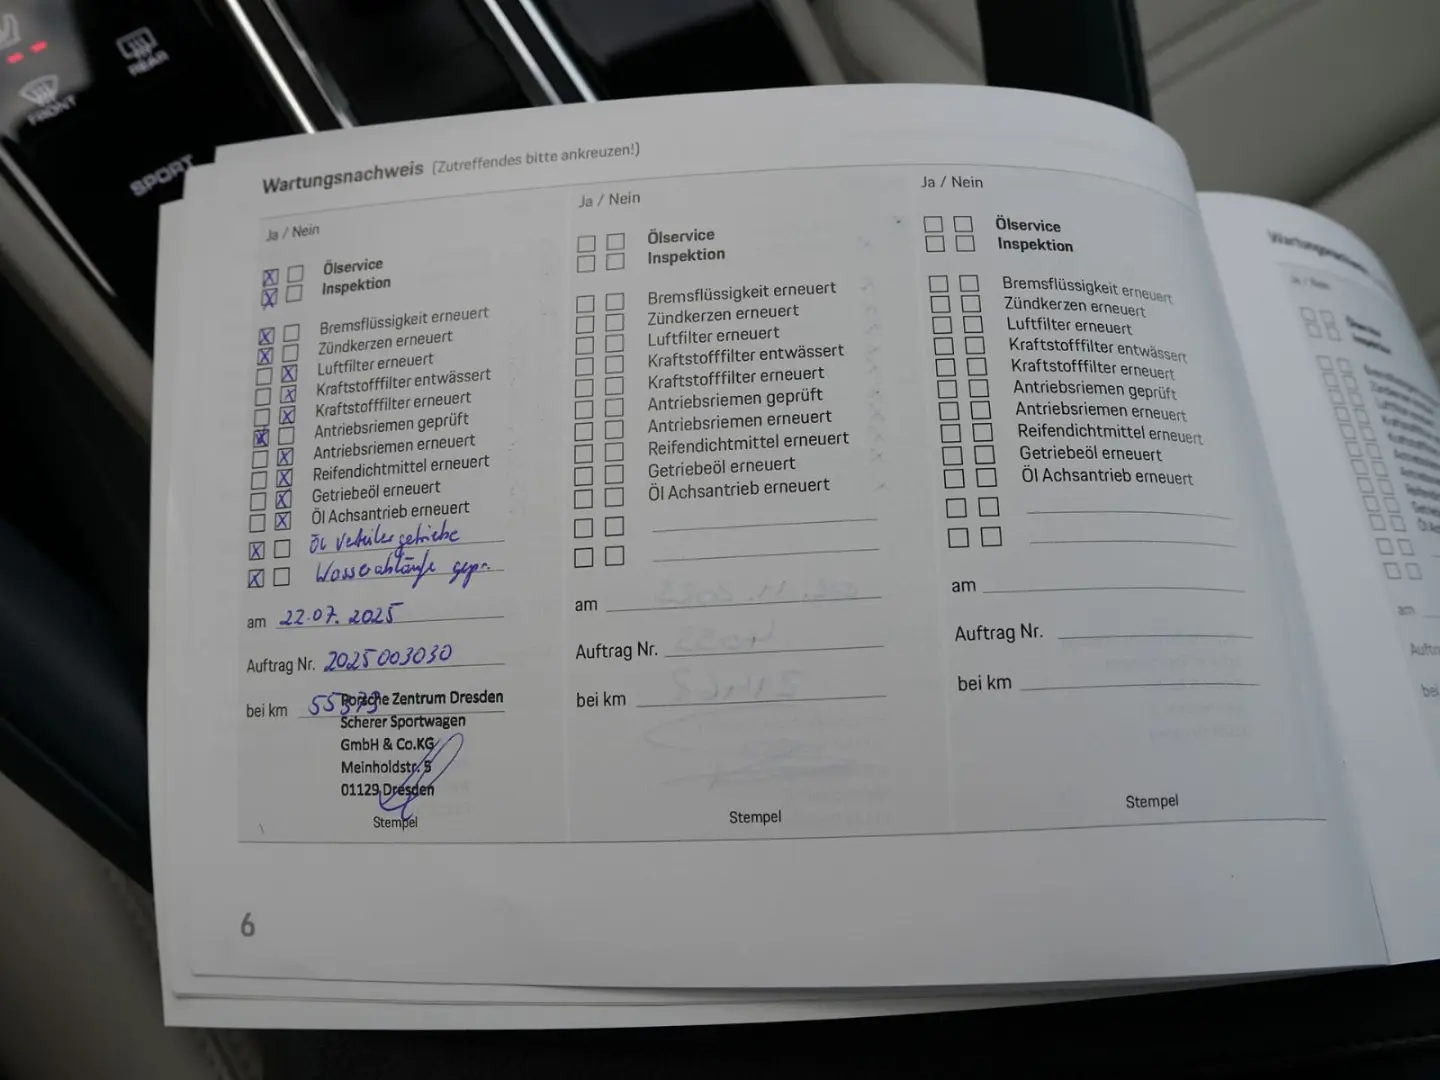 REAR
FRONT
SPORT
Wartungsnachweis (Zutreffendes bitte ankreuzen!)
Ja / Nein
X Ölservice
X Inspektion
X Bremsflüssigkeit erneuert
X Zündkerzen erneuert
X Luftfilter erneuert
X Kraftstofffilter entwässert
X Kraftstofffilter erneuert
X Antriebsriemen geprüft
X Antriebsriemen erneuert
X Reifendichtmittel erneuert
X Getriebeöl erneuert
X Öl Achsantrieb erneuert
X Öl Verteilergetriebe
X Wasserabläufe gepr.
am 22.07.2025
Auftrag Nr. 2025003030
bei km 55373
Porsche Zentrum Dresden
Scherer Sportwagen
GmbH & Co.KG
Meinholdstr. 5
01129 Dresden
Stempel
Ja / Nein
Ölservice
Inspektion
Bremsflüssigkeit erneuert
Zündkerzen erneuert
Luftfilter erneuert
Kraftstofffilter entwässert
Kraftstofffilter erneuert
Antriebsriemen geprüft
Antriebsriemen erneuert
Reifendichtmittel erneuert
Getriebeöl erneuert
Öl Achsantrieb erneuert
am
Auftrag Nr.
bei km
Stempel
Ja / Nein
Ölservice
Inspektion
Bremsflüssigkeit erneuert
Zündkerzen erneuert
Luftfilter erneuert
Kraftstofffilter entwässert
Kraftstofffilter erneuert
Antriebsriemen geprüft
Antriebsriemen erneuert
Reifendichtmittel erneuert
Getriebeöl erneuert
Öl Achsantrieb erneuert
am
Auftrag Nr.
bei km
Stempel
6